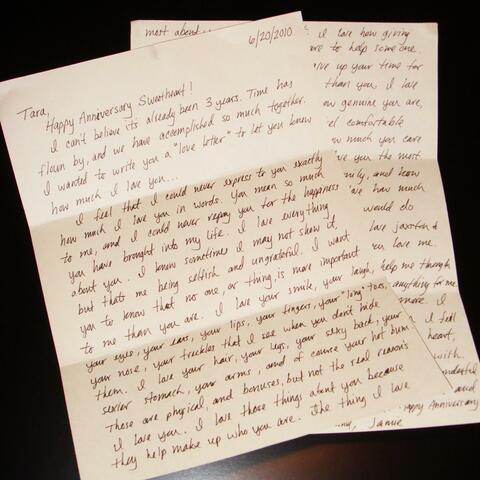 6/20/2010
Tara,
Happy Anniversary Sweetheart!
I can't believe its already been 3 years. Time has
flown by, and we have accomplished so much together.
I wanted to write you a "love letter" to let you know
how much I love you...
I feel that I could never express to you exactly
how much I love you in words. You mean so much
to me, and I could never repay you for the happiness
you have brought into my life. I love everything
about you. I know sometimes I may not show it,
but thats me being selfish and ungrateful. I want
you to know that no one, or thing, is more important
to me than you are. I love your smile, your laugh,
your eyes, your ears, your lips, your fingers, your toes,
your nose, your freckles that I see when you don't hide
them. I love your hair, your legs, your sexy back, your
sexier stomach, your arms, and of course your hot bum
These are physical, and bonuses, but not the real reasons
I love you. I love those things about you because
they help make up who you are. The thing I love
most about
I love how giving
to help someone.
give up your time for
than you. I love
how genuine you are,
feel comfortable
how much you care
the most
family, and how
how much
would do
love Jaxston &
love me.
help me through
anything for me.
more. I
I feel
heart,
with.
and
Happy Anniversary
Jamie